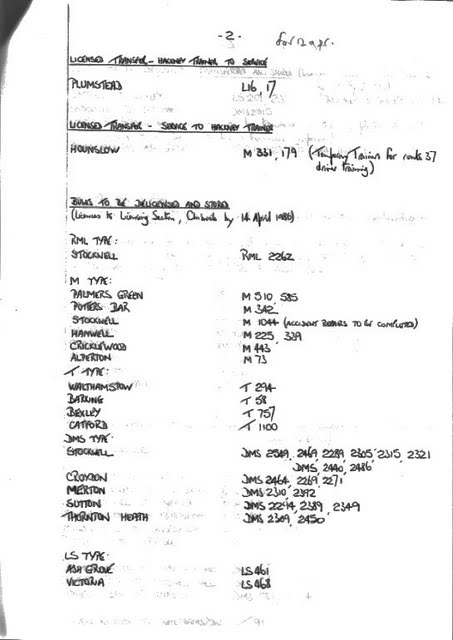 - 2 -
for 12 apr.
LICENSED TRANSFER - HACKNEY TRAINER TO SERVICE
PLUMSTEAD L16, 17
LICENSED TRANSFER - SERVICE TO HACKNEY TRAINER
HOUNSLOW M 331, 179 (Temporary Trainers for route 37
driver training)
BUSES TO BE DELICENSED AND STORED
(Licences to Licensing Section, by 14 April 1986)
RML TYPE:
STOCKWELL RML 2262
M TYPE:
PALMERS GREEN M 510, 585
POTTERS BAR M 342
STOCKWELL M 1044 (ACCIDENT REPAIRS TO BE COMPLETED)
HANWELL M 225, 339
CRICKLEWOOD M 443
ALPERTON M 73
T TYPE:
WALTHAMSTOW T 294
BARKING T 58
BEXLEY T 757
CATFORD T 1100
DMS TYPE:
STOCKWELL DMS 2549, 2469, 2289, 2305, 2315, 2321
DMS, 2440, 2486
CROYDON DMS 2464, 2269, 2271
MERTON DMS 2310, 2392
SUTTON DMS 2294, 2389, 2349
THORNTON HEATH DMS 2309, 2450
LS TYPE:
ASH GROVE LS 461
VICTORIA LS 468